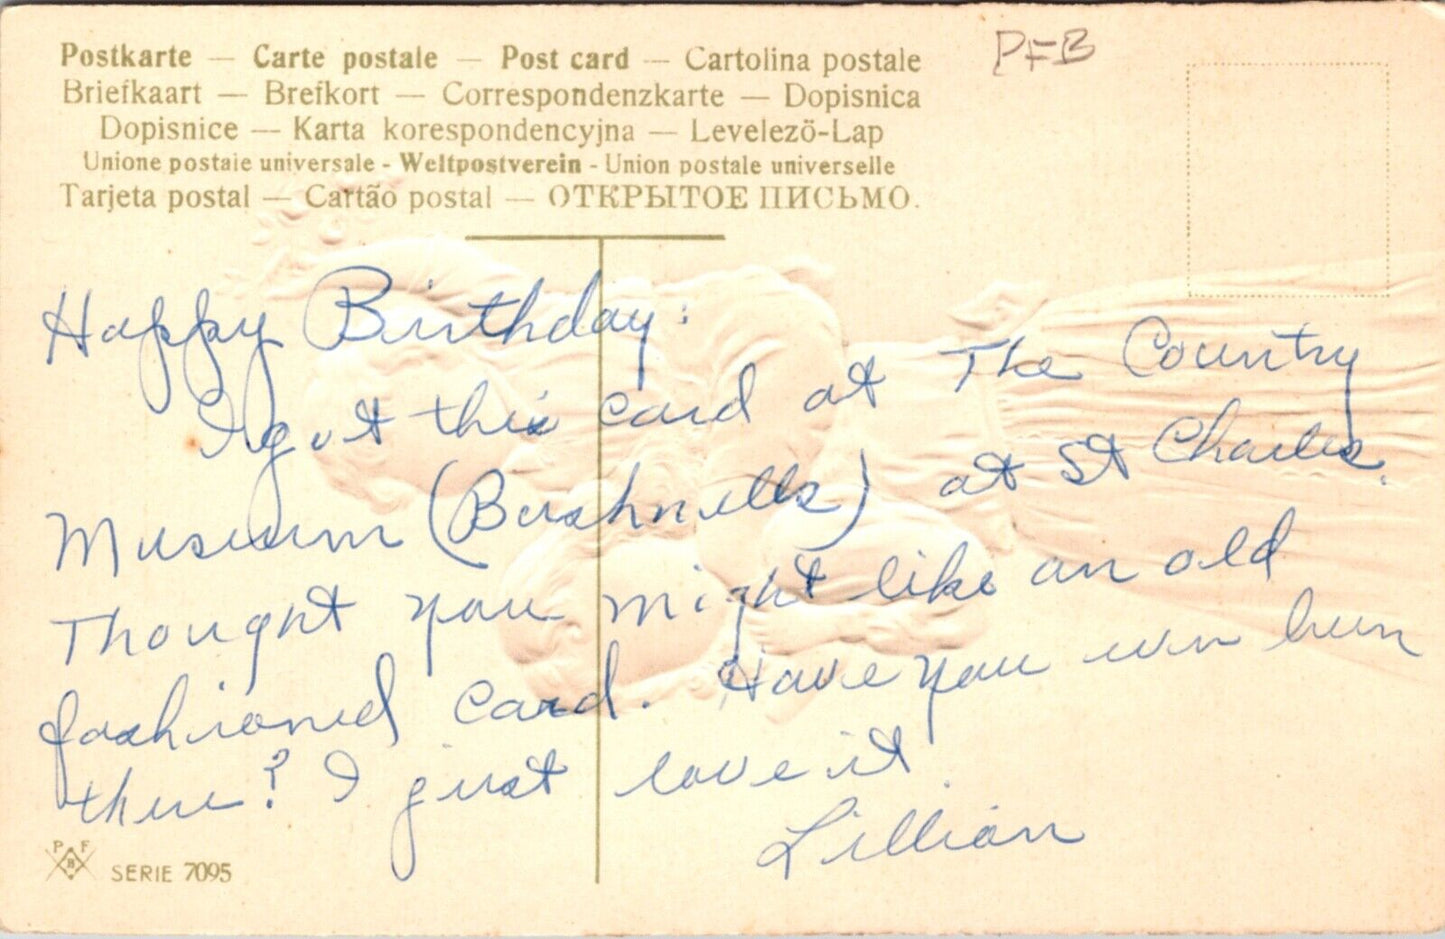 Postkarte — Carte postale — Post card — Cartolina postale
PFB
Briefkaart — Brefkort — Correspondenzkarte — Dopisnica
Dopisnice — Karta korespondencyjna — Levelezö-Lap
Unione postale universale - Weltpostverein - Union postale universelle
Tarjeta postal — Cartão postal — ОТКРЫТОЕ ПИСЬМО.
Happy Birthday:
I got this card at The Country
Museum (Bushnells) at St Charles.
Thought you might like an old
fashioned card. Have you ever been
there? I just love it.
Lillian
P F
B
SERIE 7095